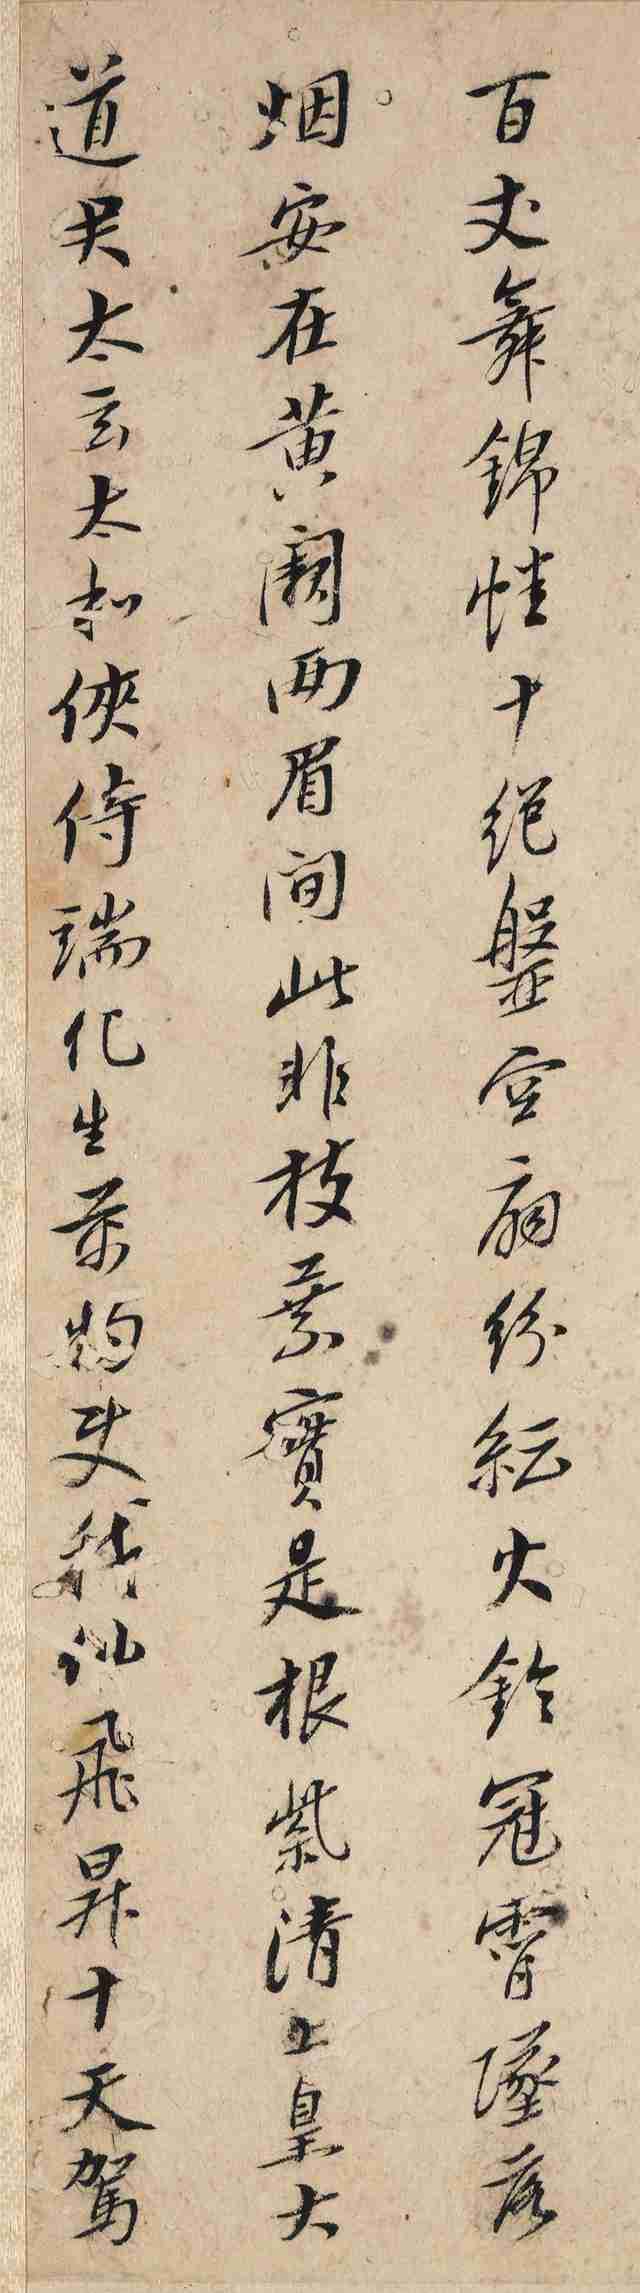 百丈舞錦十絕盤空扇紛紜火鈴冠霄墜落
烟安在黃闕兩眉間此非枝葉實是根紫清上皇大
道君太玄太和俠侍端化生萬物使我仙飛昇十天駕